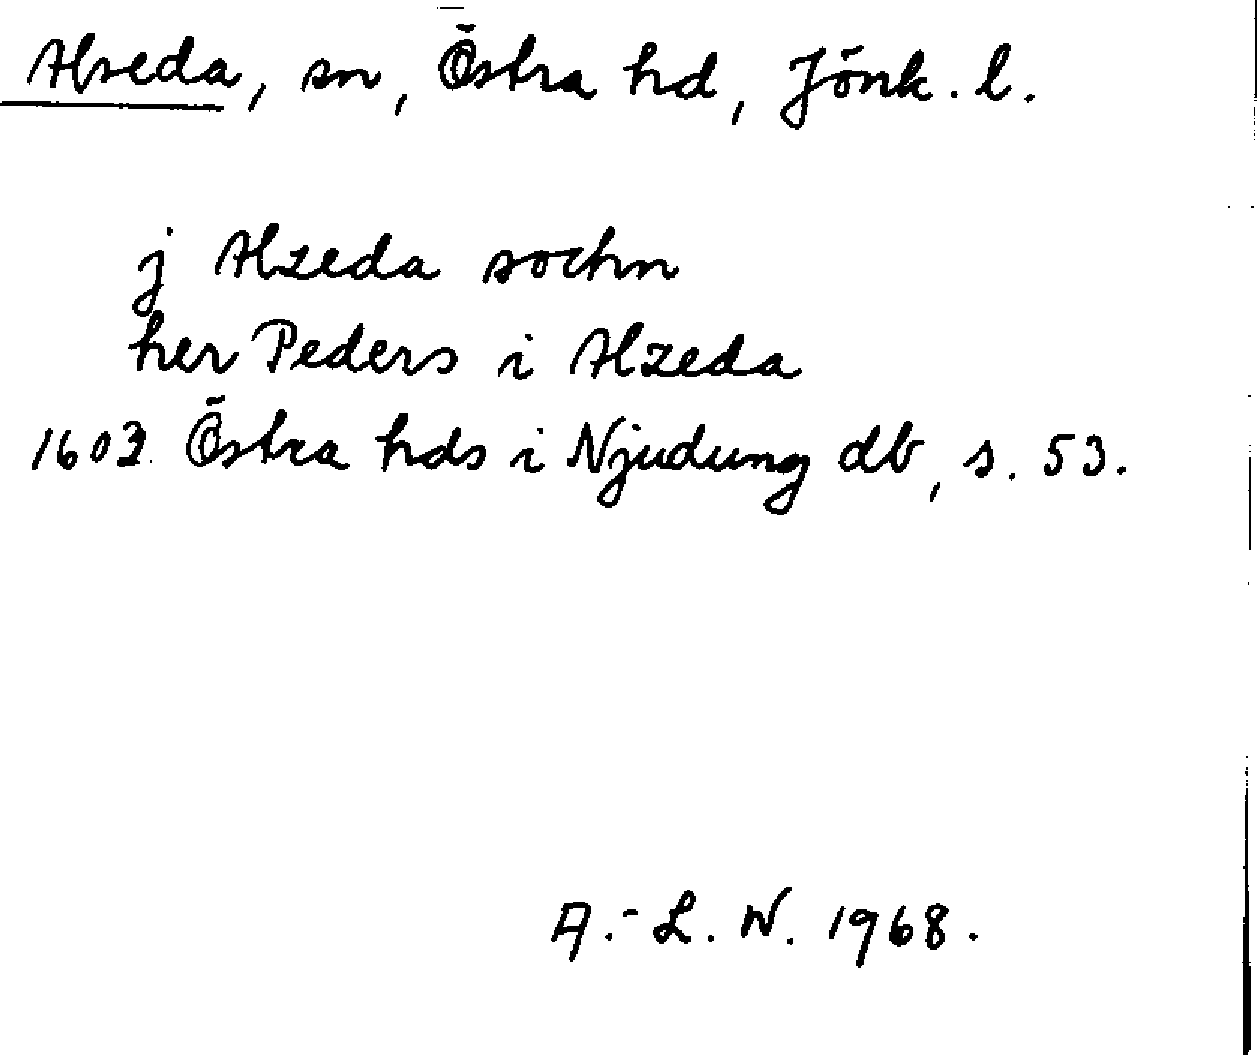 Alseda, sn, Östra hd, Jönk. l.
j Alzeda sochn
her Peders i Alzeda
1603 Östra hds i Njudung db, s. 53.
A.-L. W. 1968.